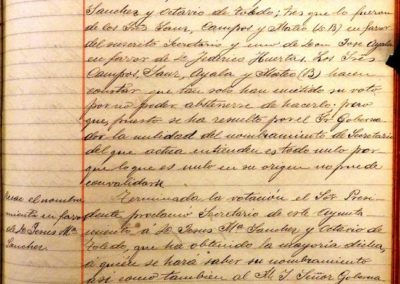 Sanchez y Octavio de Toledo; tres que lo fueron
de los Sres Saur, Campos y Mateo (D B) en favor
del suscrito Secretario y uno de Don Jose Ayala
en favor de D. Federico Huertas. Los Sres
Campos, Saur, Ayala y Mateo (B) hacen
constar que tan solo han emitido su voto
por no poder abstenerse de hacerlo; pero
que, puesto se ha resuelto por el Sr Goberna
dor la nulidad del nombramiento de Secretario
del que actua entienden es todo nulo por
que lo que es nulo en su origen no puede
convalidarse
Terminada la votación el Sor Presi-
diente proclamó Secretario de este Ayunta
miento a D. Jesus Mª Sanchez y Octavio de
Toledo, que ha obtenido la mayoria dicha,
a quien se hará saber su nombramiento
asi como tambien al M. I. Señor Goberna
el nombra
miento en favor
de D. Jesus Mª
Sanchez.